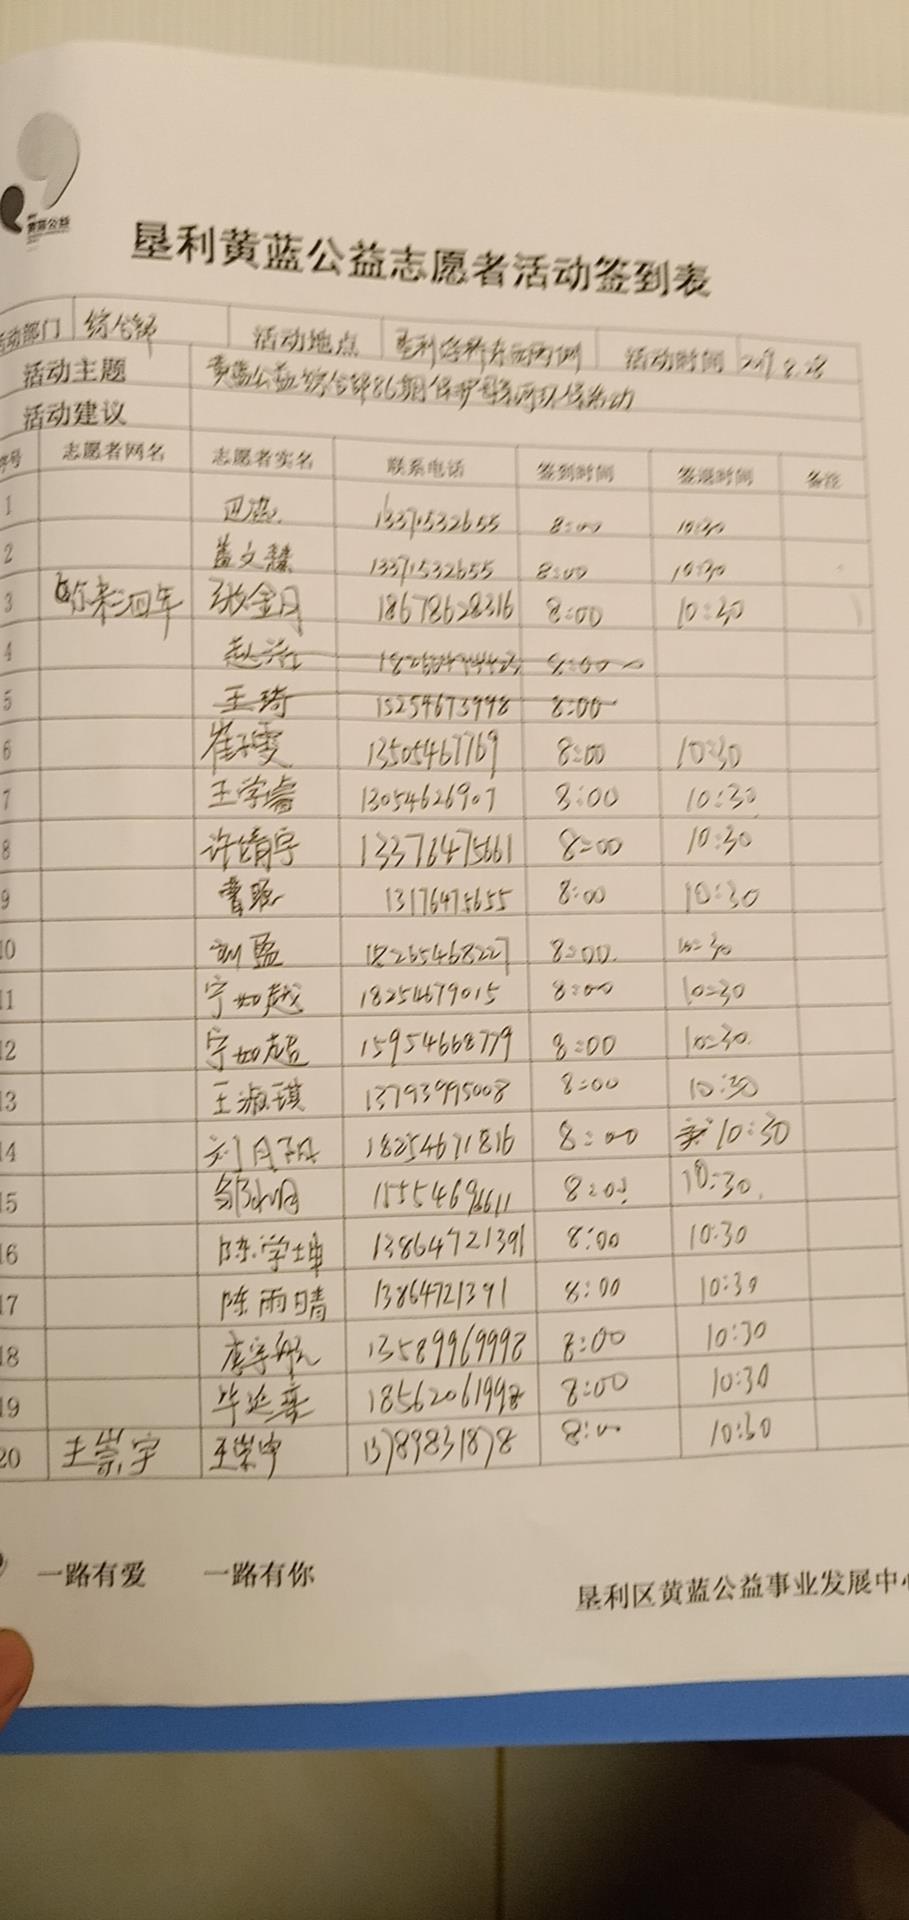 黄蓝公益
垦利黄蓝公益志愿者活动签到表
活动部门 综合部 活动地点 活动时间 2019.2.28
活动主题 黄蓝公益综合部86期保护母亲河环保活动
活动建议
序号 志愿者网名 志愿者实名 联系电话 签到时间 签退时间 备注
1 8:00 10:30
2 13371532655 8:00 10:30
3 张金月 18678628316 8:00 10:30
4 8:00
5 王琦 15254673998 8:00
6 崔雯 13505467769 8:00 10:30
7 王学睿 13054626907 8:00 10:30
8 许靖宇 13376475661 8:00 10:30
9 曹 13176475655 8:00 10:30
10 刘孟 18265468227 8:00 10:30
11 宁如越 18254679015 8:00 10:30
12 宁如超 15954668779 8:00 10:30
13 王淑琪 13793995008 8:00 10:30
14 刘月 18254671816 8:00 10:30
15 8:00 10:30
16 陈学坤 13864721391 8:00 10:30
17 陈雨晴 13864721391 8:00 10:30
18 李宇航 13589969998 8:00 10:30
19 毕延 18562061998 8:00 10:30
20 王崇宇 王崇宇 13789831878 8:00 10:30
一路有爱 一路有你
垦利区黄蓝公益事业发展中心